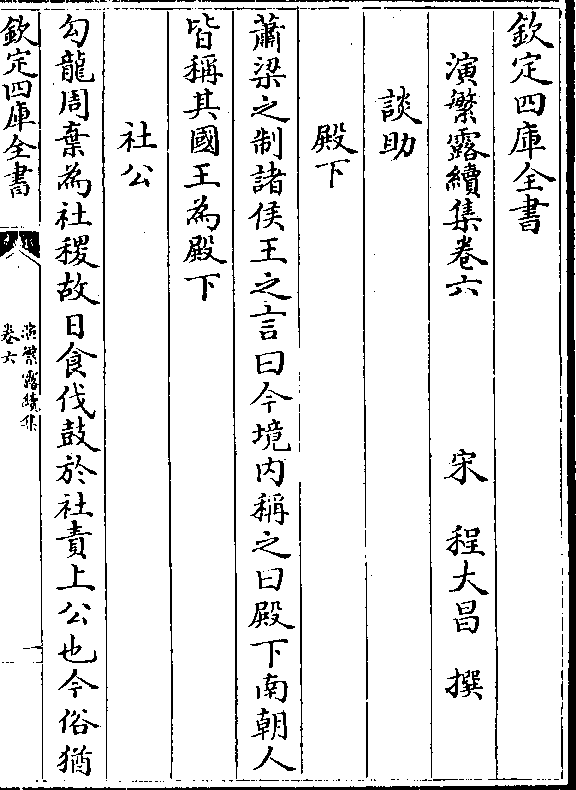 欽定四庫全書
演繁露續集卷六
宋　程大昌　撰
談助
殿下
蕭梁之制諸侯王之言曰今境内稱之曰殿下南朝人
皆稱其國王為殿下
社公
勾龍周棄為社稷故日食伐鼓於社責上公也今俗猶
欽定四庫全書
演繁露續集
卷六
一